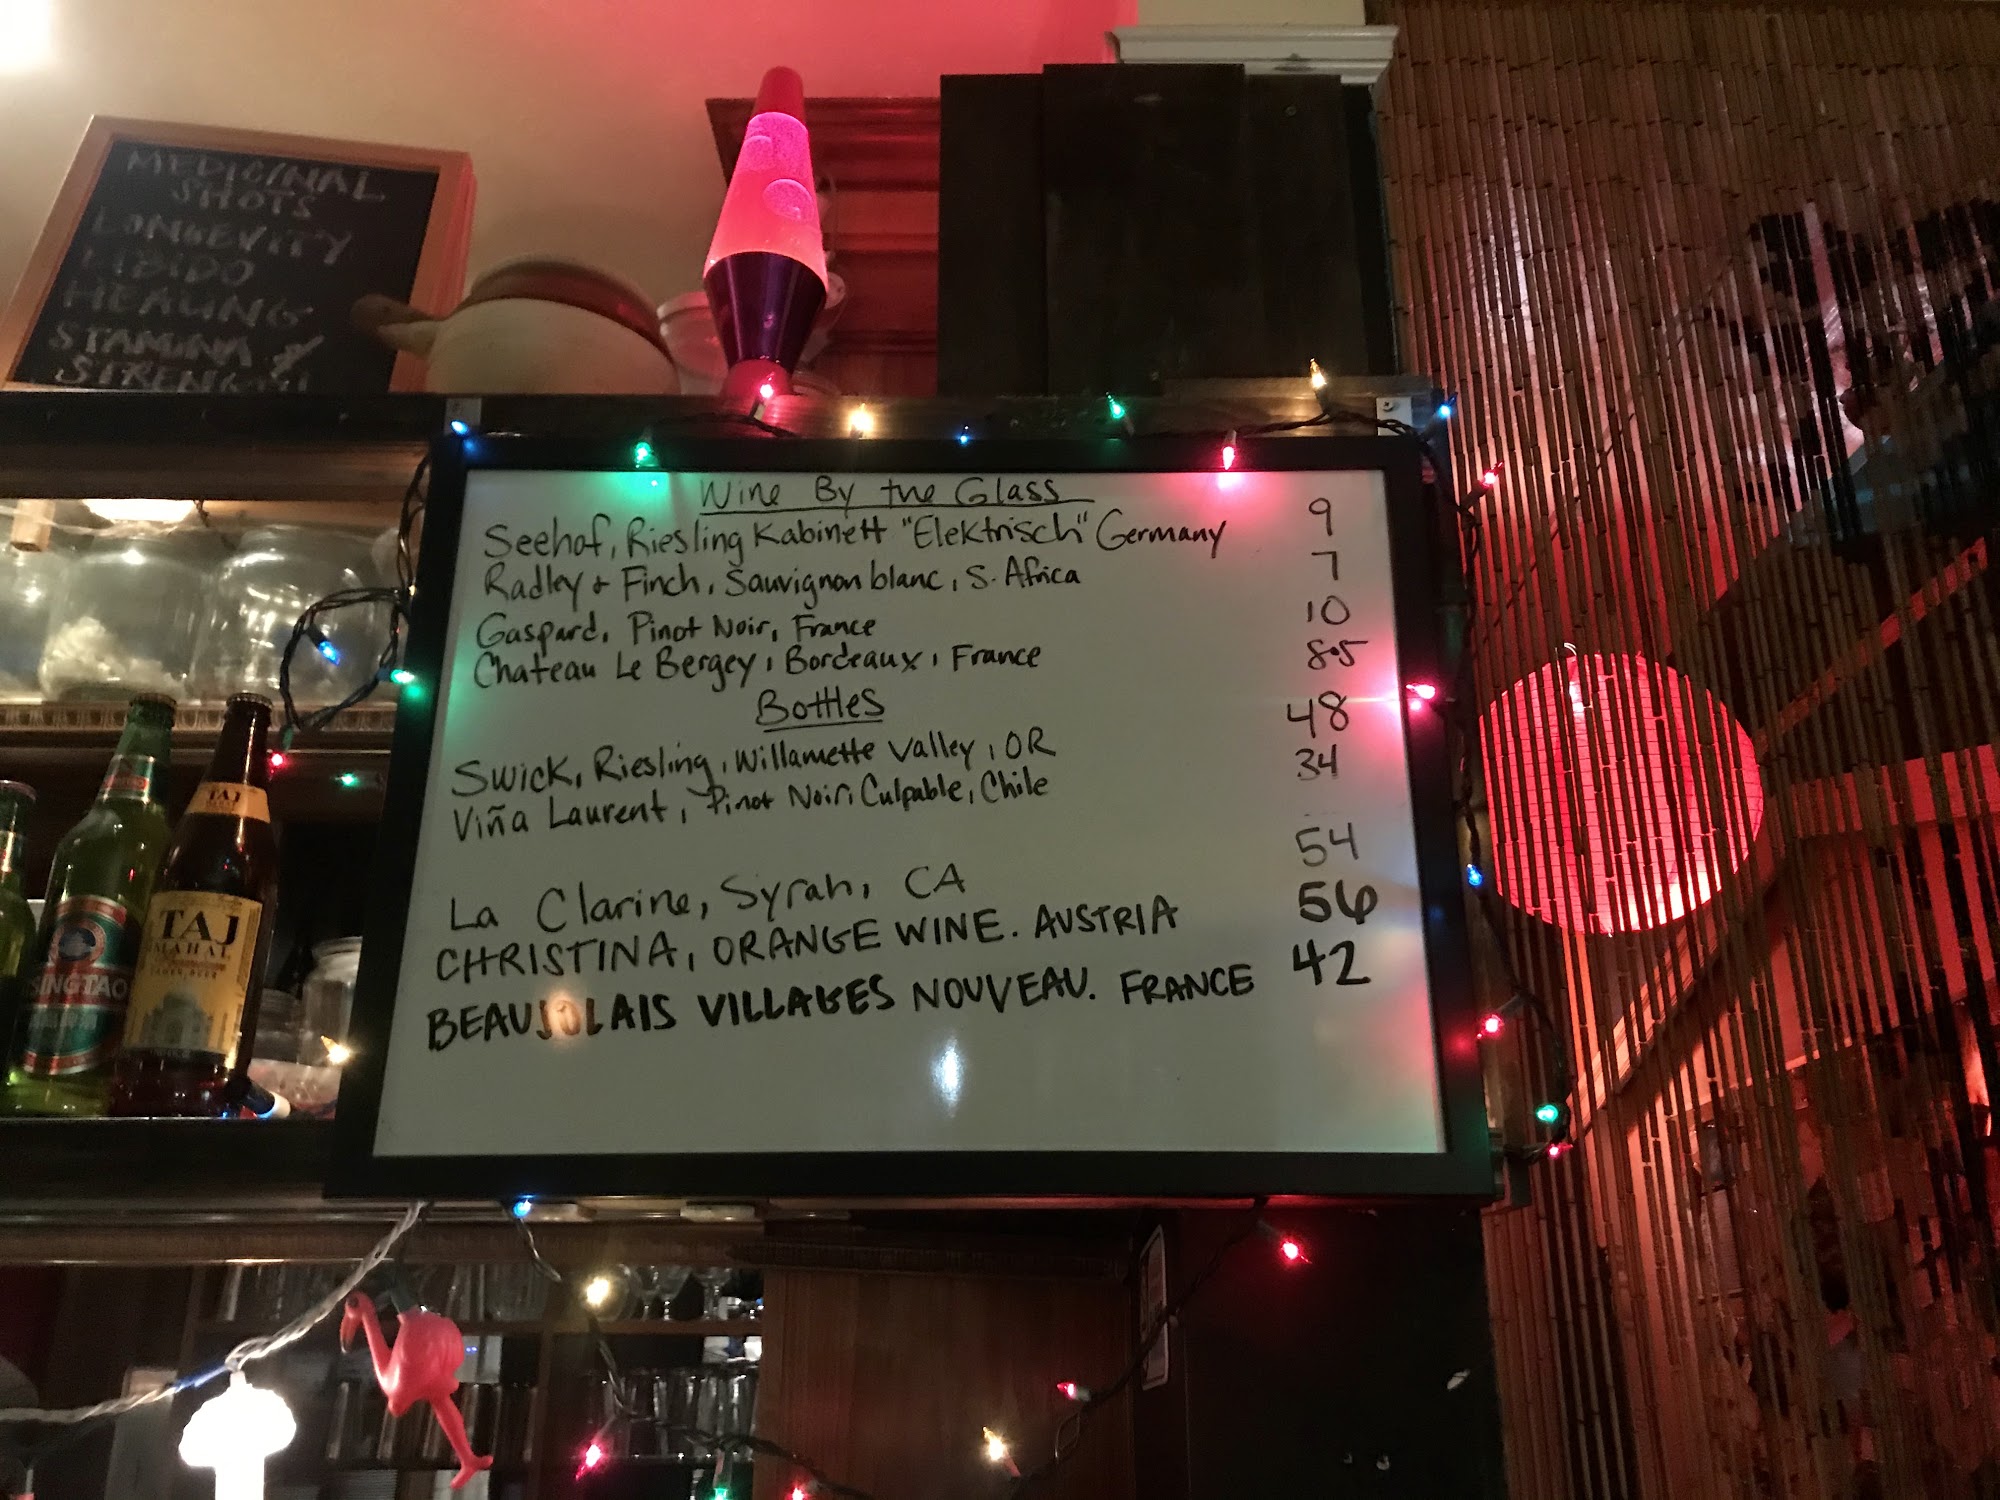 MEDICINAL
SHOTS
LONGEVITY
LIBIDO
HEALING
STAMINA &
STRENGTH
Wine By the Glass
Seehof, Riesling Kabinett "Elektrisch" Germany 9
Radley & Finch, Sauvignon blanc, S. Africa 7
Gaspard, Pinot Noir, France 10
Chateau Le Bergey, Bordeaux, France 8.5
Bottles
Swick, Riesling, Willamette Valley, OR 48
Viña Laurent, Pinot Noir, Culpable, Chile 34
La Clarine, Syrah, CA 54
CHRISTINA, ORANGE WINE. AUSTRIA 56
BEAUJOLAIS VILLAGES NOUVEAU. FRANCE 42
TAJ
TAJ
MAHAL
SINGTAO